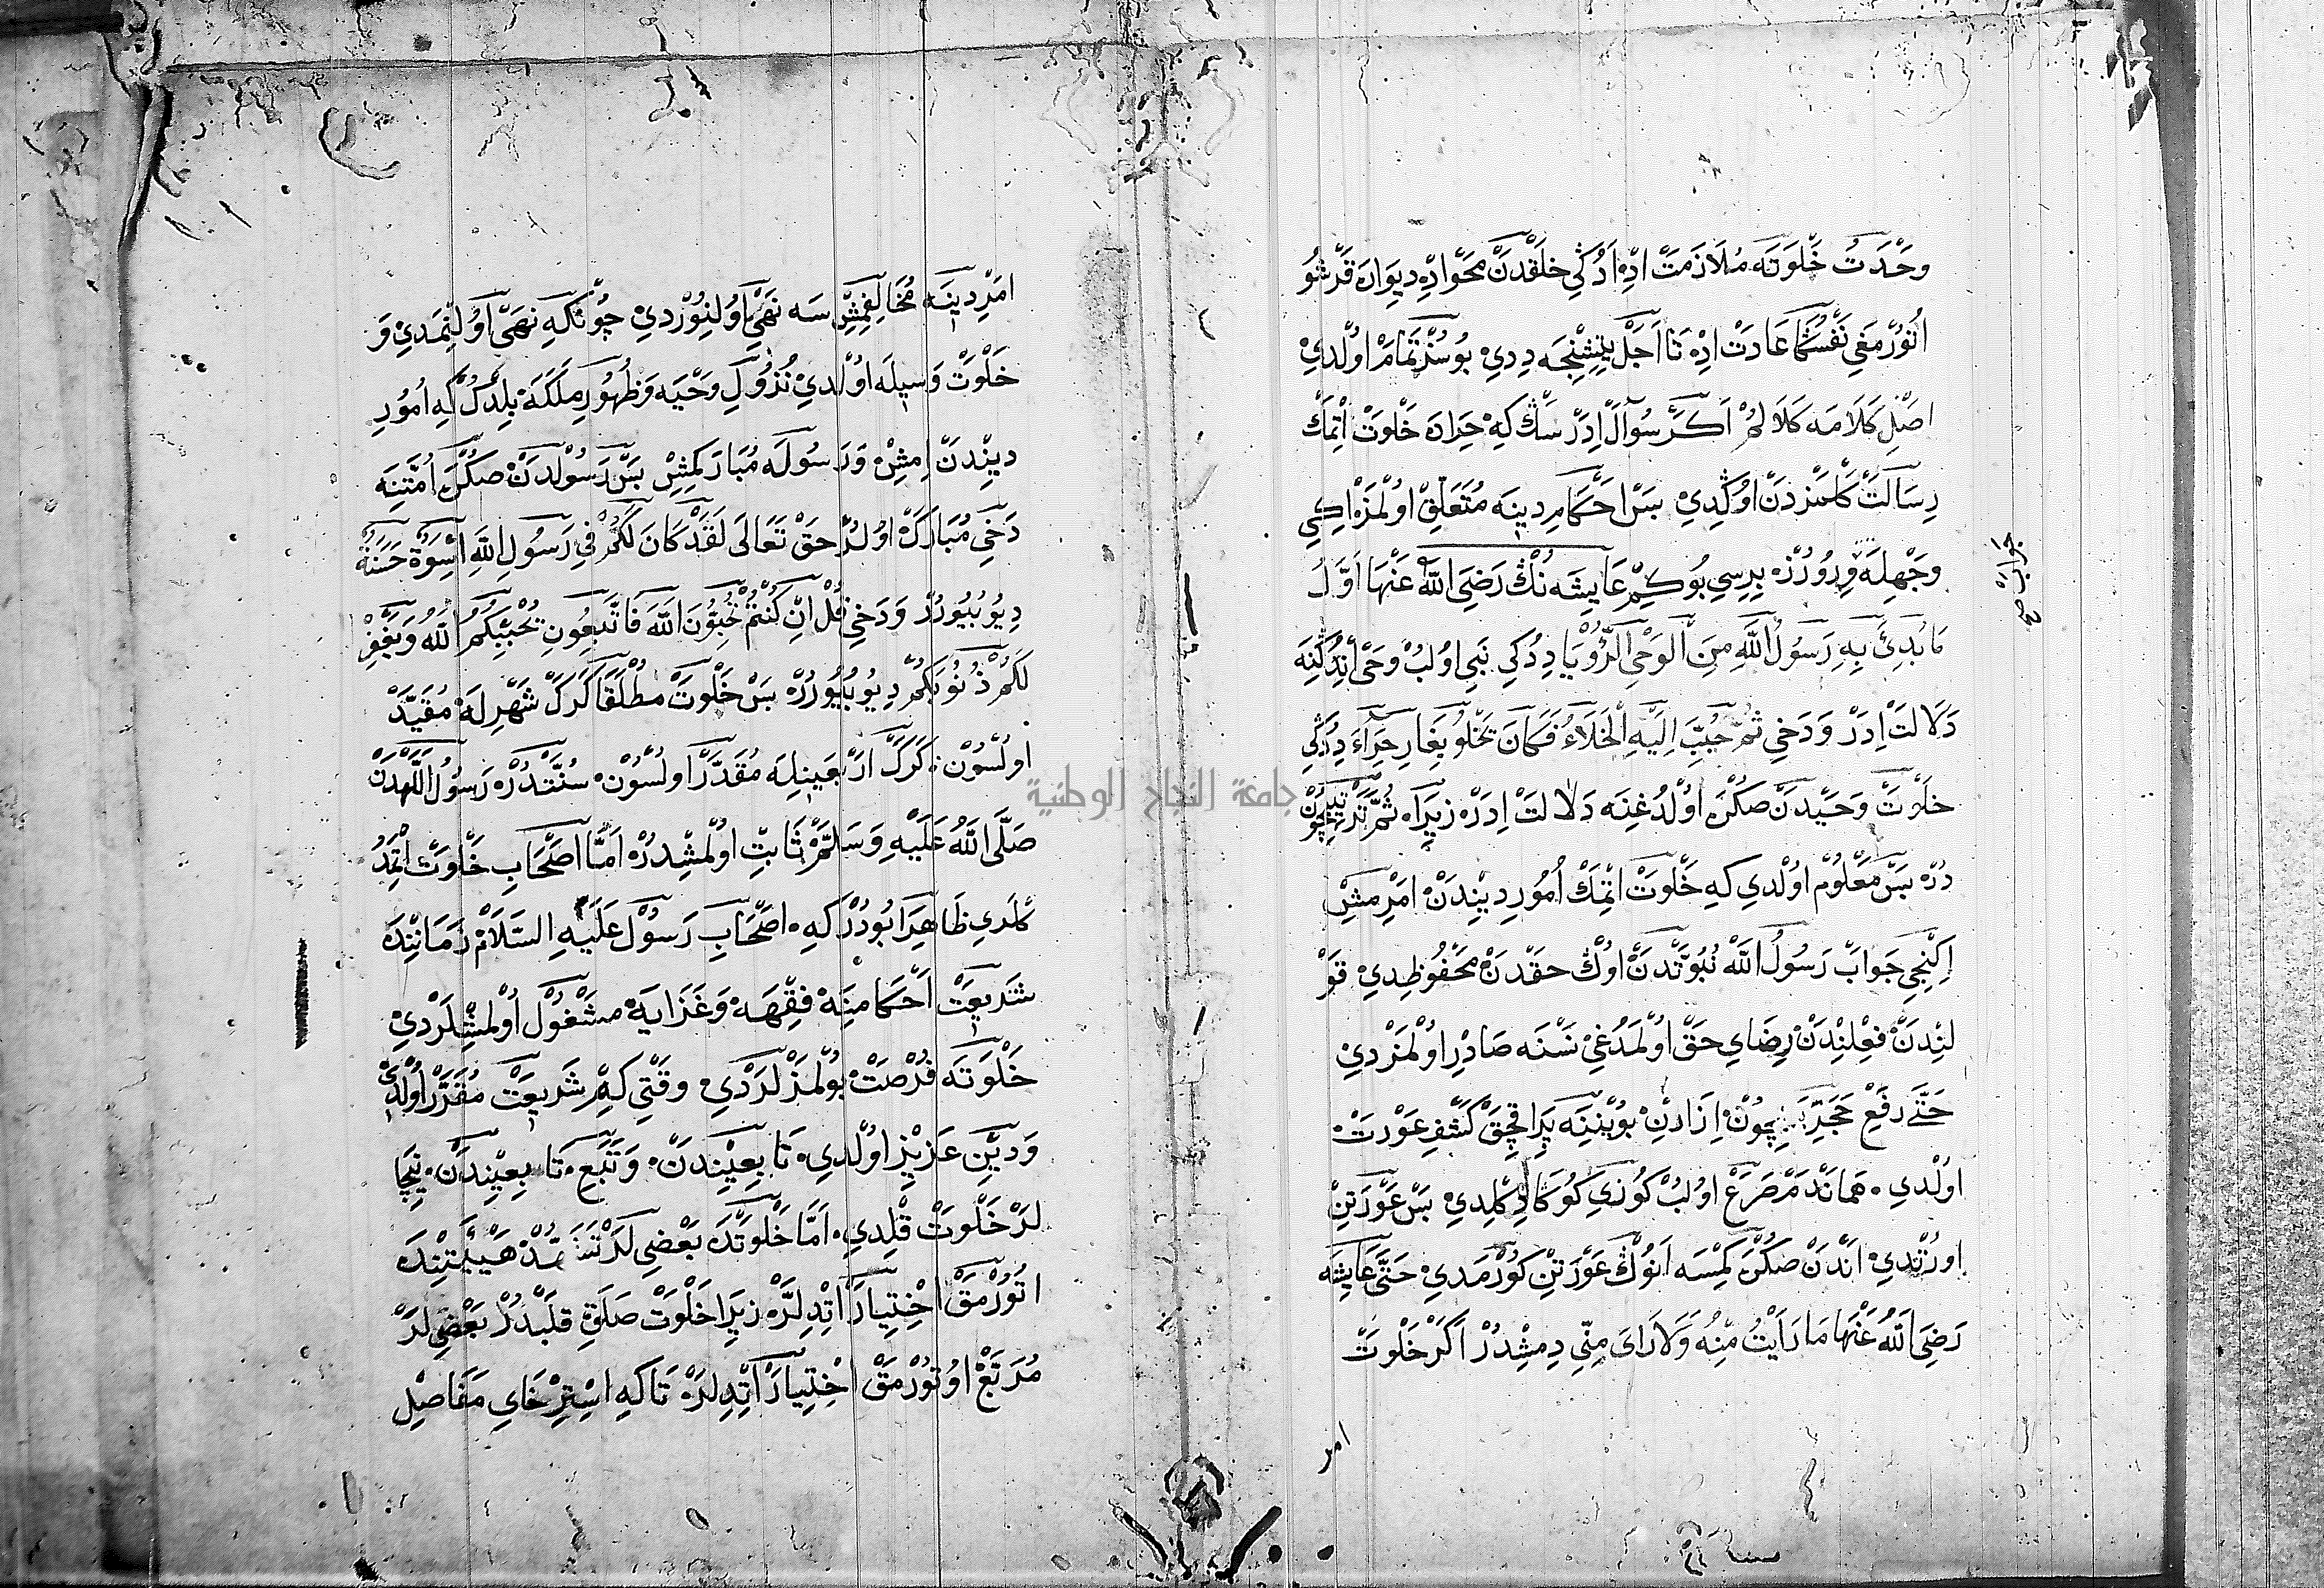 وَحْدَتْ خَلْوَتَه مُلَازَمَتْ ادِهْ اَدُكِي خلقدَنْ مَحَوْ ادِهْ دِيوَارَه قَرْشُو
اُتُوُرْمَغِي نَفْسُكَا عَادَتْ ادِهْ تَا اَجَلْ يِتِشِنْجَه دِدِي بُو سُوُزْ تَمَامْ اوُلْدِي
اصْلِ كَلَامَه كَلَالُمْ اَكَرْ سُوآلْ اِدَرْسَكْ كِهْ حِرَادَه خَلْوَتْ اتْمَكْ
رِسَالَتْ كَلْمَزْدَنْ اوُكْدِي بَسْ اَحْكَامِ دِينَه مُتَعَلِّقْ اوُلْمَزْ اِكِي
وَجْهِلَه وِرُورُزْ بِرِسِي بُو كِيمْ عَايِشَه نُنْكْ رَضِيَ اللّٰهُ عَنْهَا اَوَّلُ
مَا بُدِئَ بِهِ رَسُولُ اللَّهِ مِنَ الْوَحْيِ الرُّؤْيَا دِدُكِي نَبِي اوُلُبْ وَحْيْ اِنْدُكِنَه
دَلَالَتْ اِدَرْ وَدَخِي ثُمَّ حُبِّبَ اِلَيْهِ الْخَلَاءُ فَكَانَ يَخْلُو بِغَارِ حِرَاءَ دِدُكِي
خَلْوَتْ وَحْيِدَنْ صَكْرَه اوُلْدُغِنَه دَلَالَتْ اِدَرْ زِيرَا ثُمَّ تَرْتِيبْ اِچُونْ
دُرْ بَسْ مَعْلُومْ اوُلْدِي كِهِ خَلْوَتْ اتْمَكْ اُمُورِ دِينْدَنْ امْرِمِشْ
اِكِنْجِي جَوَابْ رَسُولُ اللّٰهْ نُبُوَّتْدَنْ اوُكْ حقدَنْ مَحْفُوظِدِي قَوْ
لِنْدَنْ فِعْلِنْدَنْ رِضَايِ حَقْ اوُلْمَدُغِي نَسْنَه صَادِرْ اوُلْمَزْدِي
حَتَّى رَفْعِ حَجَرْ اِچُونْ اِزَارِنْ بُوينِنَه بِرَاقِچَقْ كَشْفِ عَوْرَتْ
اوُلْدِي هَمَانْدَمْ صَرَعْ اوُلُبْ كُوزِي كُوكَا دِكِلْدِي بَسْ عَوْرَتِنْ
اورْتْدِي اَنْدَنْ صَكْرَه كِمْسَه اَنُوكْ عَوْرَتِنْ كُورْمَدِي حَتَّى عَايِشَه
رَضِيَ اللّٰهُ عَنْهَا مَا رَاَيْتُ مِنْهُ وَلَا رَاىَ مِنِّي دِمِشْدُرْ اَكَرْ خَلْوَتْ
امر
جواب
صح
امْرِ دِينَه مُخَالِفْمِشْسَه نَهْيْ اوُلِنُورْدِي چُونْكِه نَهْيْ اوُلِنْمَدِي وَ
خَلْوَتْ وَسِيلَه اوُلْدِي نُزُولِ وَحْيَه وَظُهُورِ مَلَكَه بِلِنْدِي كِهِ اُمُورِ
دِينْدَنْ اِمِشْ وَرَسُولَه مُبَارَكْمِشْ بَسْ رَسُولْدَنْ صَكْرَه اُمَّتِنَه
دَخِي مُبَارَكْ اوُلُرْ حَقْ تَعَالَى لَقَدْ كَانَ لَكُمْ فِي رَسُولِ اللّٰهِ اُسْوَةٌ حَسَنَةٌ
دِيُو بُيُورُرْ وَدَخِي قُلْ اِنْ كُنْتُمْ تُحِبُّونَ اللّٰهَ فَاتَّبِعُونِي يُحْبِبْكُمُ اللّٰهُ وَيَغْفِرْ
لَكُمْ ذُنُوبَكُمْ دِيُو بُيُورُرْ بَسْ خَلْوَتْ مُطْلَقَا كَرَكْ شَهْرِلَه مُقَيَّدْ
اولْسُونْ كَرَكْ اَرْبَعِينِلَه مُقَدَّرْ اولْسُونْ سُنَّتْدُرْ رَسُولُ اللّٰهْدَنْ
صَلَّى اللّٰهُ عَلَيْهِ وَسَلَّمْ ثَابِتْ اوُلْمِشْدُرْ اَمَّا اَصْحَابِ خَلْوَتْ اتْمَدُ
كْلَرِي ظَاهِرَا بُودُرْكِه اصْحَابِ رَسُولْ عَلَيْهِ السَّلَامْ زَمَانِنْدَه
شَرِيعَتْ اَحْكَامِنَه فِقْهَه وَغَزَايَه مَشْغُولْ اوُلْمِشْلَرْدِي
خَلْوَتَه فُرْصَتْ بُولْمَزْلَرْدِي وَقْتِي كِهِ شَرِيعَتْ مُقَرَّرْ اوُلْدِي
وَدِينْ عَزِيزْ اوُلْدِي تَابِعِينْدَنْ وَتَبَعِ تَابِعِينْدَنْ نِيچَا
لَرْ خَلْوَتْ قِلْدِي اَمَّا خَلْوَتْدَه بَعْضِيلَرْ تَشَهُّدْ هَيْئَتِنْدَه
اتُورْمَقْ اخْتِيَارْ اتْدِلَرْ زِيرَا خَلْوَتْ صَلَوةِ قَلْبْدُرْ بَعْضِيلَرْ
مُرَبَّعْ اوُتُورْمَقْ اخْتِيَارْ اتْدِلَرْ تَاكِهِ اسْتِرْخَايِ مَفَاصِلْ
جامعة النجاح الوطنية